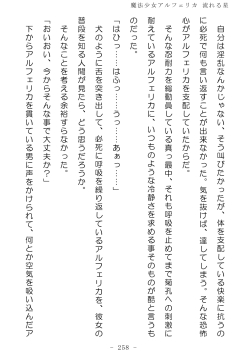 魔法少女アルフェリカ 流れる星
自分は淫乱なんかじゃない、そう叫びたかったが、体を支配している快楽に抗うの
に必死で何も言い返すことが出来なかった。気を抜けば、達してしまう。そんな恐怖
心がアルフェリカを支配していたからだ。
そんな忍耐力を総動員している真っ最中、それも呼吸を止めてまで菊孔への刺激に
耐えているアルフェリカに、いつものような冷静さを求める事そのものが酷と言うも
のだった。
「はひっ……はふっ……うっ……あぁっ……」
犬のように舌を突き出して、必死に呼吸を繰り返しているアルフェリカを、彼女の
普段を知る人間が見たら、どう思うだろうか。
そんなことを考える余裕すらなかった。
「おいおい、今からそんな事で大丈夫か？」
下からアルフェリカを貫いている男に声をかけられて、何とか空気を吸い込んだア
- 258 -